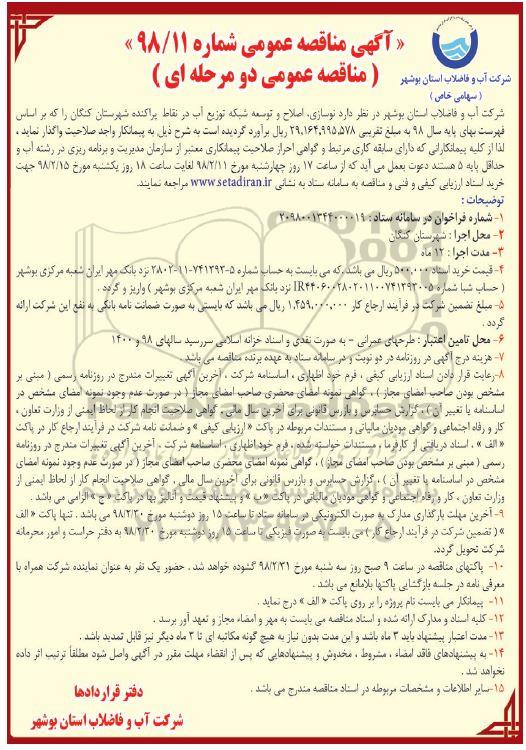 « آگهی مناقصه عمومی شماره ۹۸/۱۱ »
( مناقصه عمومی دو مرحله ای )
شرکت آب و فاضلاب استان بوشهر
( سهامی خاص )
شرکت آب و فاضلاب استان بوشهر در نظر دارد نوسازی، اصلاح و توسعه شبکه توزیع آب در نقاط پراکنده شهرستان کنگان را که بر اساس
فهرست بهای پایه سال ۹۸ به مبلغ تقریبی ۲۹,۱۶۴,۹۹۵,۵۷۸ ریال برآورد گردیده است به شرح ذیل به پیمانکار واجد صلاحیت واگذار نماید ،
لذا از کلیه پیمانکارانی که دارای سابقه کاری مرتبط و گواهی احراز صلاحیت پیمانکاری معتبر از سازمان مدیریت و برنامه ریزی در رشته آب و
حداقل پایه ۵ هستند دعوت بعمل می آید که از ساعت ۱۷ روز چهارشنبه مورخ ۹۸/۲/۱۱ لغایت ساعت ۱۸ روز یکشنبه مورخ ۹۸/۲/۱۵ جهت
خرید اسناد ارزیابی کیفی و فنی و مناقصه به سامانه ستاد به نشانی www.setadiran.ir مراجعه نمایند.
توضیحات :
۱- شماره فراخوان در سامانه ستاد : ۲۰۹۸۰۰۱۳۴۴۰۰۰۰۱۹
۲- محل اجرا : شهرستان کنگان
۳- مدت اجرا : ۱۲ ماه
۴- قیمت خرید اسناد ۵۰۰,۰۰۰ ریال می باشد ،که می بایست به حساب شماره ۵-۷۴۱۳۹۳-۱۱-۲۸۰۲ نزد بانک مهر ایران شعبه مرکزی بوشهر
( حساب شبا شماره IR۴۴۰۶۰۰۲۸۰۲۰۱۱۰۰۷۴۱۳۹۳۰۰۵ نزد بانک مهر ایران شعبه مرکزی بوشهر ) واریز و گردد .
۵- مبلغ تضمین شرکت در فرآیند ارجاع کار ۱,۴۵۹,۰۰۰,۰۰۰ ریال می باشد که بایستی به صورت ضمانت نامه بانکی به نفع این شرکت ارائه
گردد .
۶- محل تامین اعتبار : طرحهای عمرانی – به صورت نقدی و اسناد خزانه اسلامی سررسید سالهای ۹۸ و ۱۴۰۰
۷- هزینه درج آگهی در روزنامه در دو نوبت و در سامانه ستاد به عهده برنده مناقصه می باشد .
۸-رعایت قرار دادن اسناد ارزیابی کیفی ، فرم خود اظهاری ، اساسنامه شرکت ، آخرین آگهی تغییرات مندرج در روزنامه رسمی ( مبنی بر
مشخص بودن صاحب امضای مجاز ) ، گواهی نمونه امضای محضری صاحب امضای مجاز ( در صورت عدم وجود نمونه امضای مشخص در
اساسنامه یا تغییر آن ) ، گزارش حسابرس و بازرس قانونی برای آخرین سال مالی ، گواهی صلاحیت انجام کار از لحاظ ایمنی از وزارت تعاون ،
کار و رفاه اجتماعی و گواهی مودیان مالیاتی و مستندات مربوطه در پاکت « ارزیابی کیفی » و ضمانت نامه شرکت در فرآیند ارجاع کار در پاکت
« الف » ، اسناد دریافتی از کارفرما ، مستندات خواسته شده ، فرم خود اظهاری ، اساسنامه شرکت ، آخرین آگهی تغییرات مندرج در روزنامه
رسمی ( مبنی بر مشخص بودن صاحب امضای مجاز) ، گواهی نمونه امضای محضری صاحب امضای مجاز ( در صورت عدم وجود نمونه امضای
مشخص در اساسنامه یا تغییر آن ) ، گزارش حسابرس و بازرس قانونی برای آخرین سال مالی ، گواهی صلاحیت انجام کار از لحاظ ایمنی از
وزارت تعاون ، کار و رفاه اجتماعی و گواهی مودیان مالیاتی در پاکت « ب » و پیشنهاد قیمت و آنالیز بها در پاکت « ج » الزامی می باشد .
۹- آخرین مهلت بارگذاری مدارک به صورت الکترونیکی در سامانه ستاد تا ساعت ۱۵ روز دوشنبه مورخ ۹۸/۲/۳۰ می باشد . تنها پاکت « الف
» ( تضمین شرکت در فرآیند ارجاع کار) می بایست به صورت فیزیکی تا ساعت ۱۵ روز دوشنبه مورخ ۹۸/۲/۳۰ به دفتر حراست و امور محرمانه
شرکت تحویل گردد.
۱۰- پاکتهای مناقصه در ساعت ۹ صبح روز سه شنبه مورخ ۹۸/۲/۳۱ گشوده خواهد شد . حضور یک نفر به عنوان نماینده شرکت همراه با
معرفی نامه در جلسه بازگشایی پاکتها بلامانع می باشد .
۱۱- پیمانکار می بایست نام پروژه را بر روی پاکت « الف » درج نماید .
۱۲- کلیه اسناد و مدارک ارائه شده و اسناد مناقصه می بایست به مهر و امضاء مجاز و تعهد آور برسد .
۱۳- مدت اعتبار پیشنهاد باید ۳ ماه باشد و این مدت بدون نیاز به هیچ گونه مکاتبه ای تا ۳ ماه دیگر نیز قابل تمدید باشد .
۱۴- به پیشنهادهای فاقد امضاء ، مشروط ، مخدوش و پیشنهادهایی که پس از انقضاء مهلت مقرر در آگهی واصل شود مطلقاً ترتیب اثر داده
نخواهد شد .
۱۵-سایر اطلاعات و مشخصات مربوطه در اسناد مناقصه مندرج می باشد .
دفتر قراردادها
شرکت آب و فاضلاب استان بوشهر